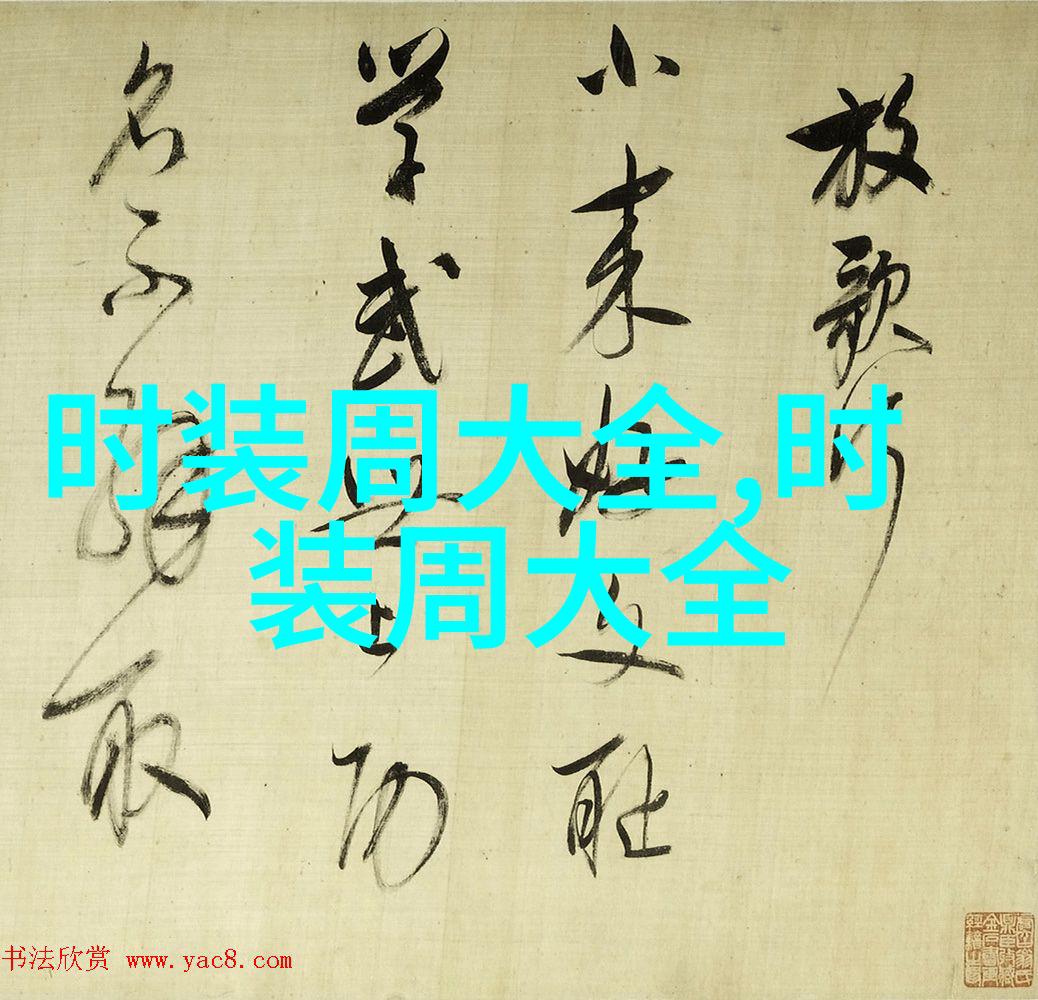 放歌行
小来好文耻
学武世上功
名不解取
时装周大全,时
装周大全
书法欣赏 www.yac8.com